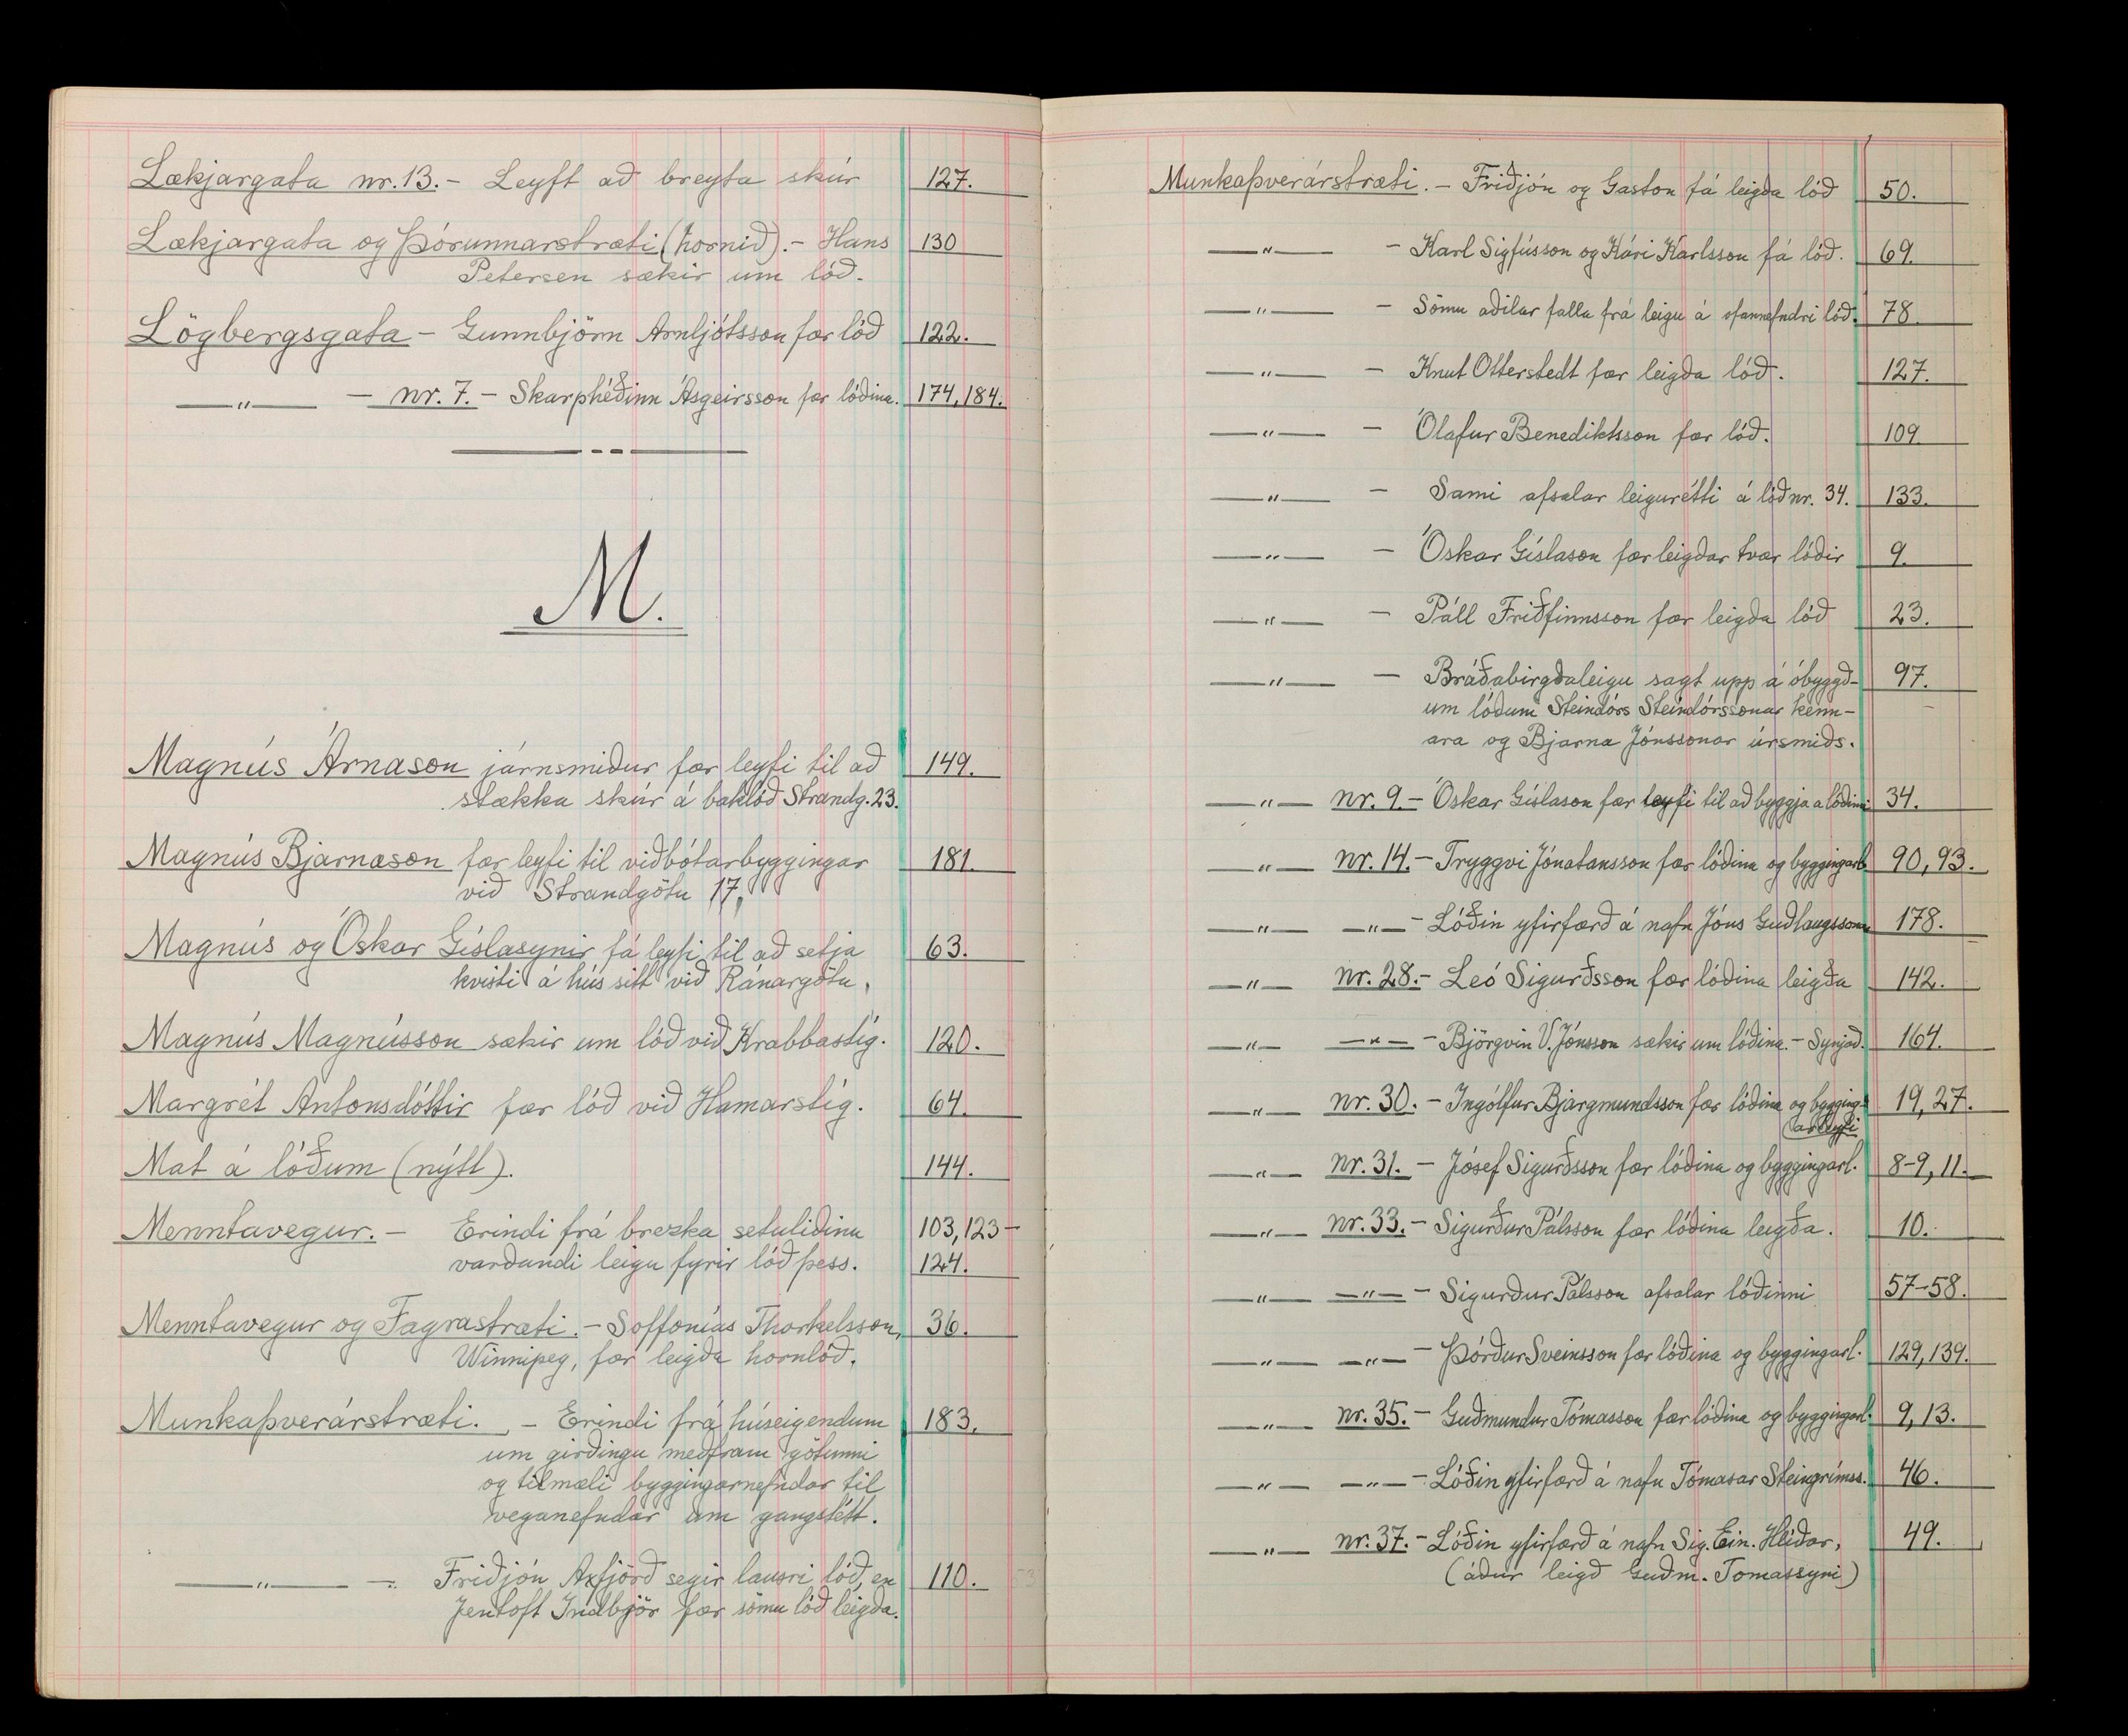 Lækjargata nr. 13. - Leyft að breyta skúr 127.
Lækjargata og Þórunnarstræti (hornið). - Hans 130
Petersen sækir um lóð.
Lögbergsgata - Gunnbjörn Arnljótsson fær lóð 122.
—„— - nr. 7. - Skarphéðinn Ásgeirsson fær lóðina. 174, 184.
M.
Magnús Árnason járnsmiður fær leyfi til að 149.
stækka skúr á baklóð Strandg. 23.
Magnús Bjarnason fær leyfi til viðbótarbyggingar 181.
við Strandgötu 17.
Magnús og Óskar Gíslasynir fá leyfi til að setja 63.
kvisti á hús sitt við Ránargötu.
Magnús Magnússon sækir um lóð við Krabbastíg. 120.
Margrét Antonsdóttir fær lóð við Hamarstíg. 64.
Mat á lóðum (nýtt). 144.
Menntavegur. - Erindi frá brezka setuliðinu 103, 123-
varðandi leigu fyrir lóð þess. 124.
Menntavegur og Fagrastræti. - Soffonías Thorkelsson, 36.
Winnipeg, fær leigða hornlóð.
Munkaþverárstræti. - Erindi frá húseigendum 183.
um girðingu meðfram götunni
og tilmæli byggingarnefndar til
veganefndar um gangstétt.
—„— - Friðjón Axfjörð segir lausri lóð, en 110.
Jentoft Indbjör fær sömu lóð leigða.
Munkaþverárstræti. - Friðjón og Gaston fá leigða lóð 50.
—„— - Karl Sigfússon og Kári Karlsson fá lóð. 69.
—„— - Sömu aðilar falla frá leigu á ofannefndri lóð. 78
—„— - Knut Otterstedt fær leigða lóð. 127.
—„— - Ólafur Benediktsson fær lóð. 109.
—„— - Sami afsalar leigurétti á lóð nr. 34. 133.
—„— - Óskar Gíslason fær leigðar tvær lóðir 9.
—„— - Páll Friðfinnsson fær leigða lóð 23.
—„— - Bráðabirgðaleigu sagt upp á óbyggð- 97.
um lóðum Steindórs Steindórssonar kenn-
ara og Bjarna Jónssonar úrsmiðs.
—„— nr. 9. - Óskar Gíslason fær leyfi til að byggja a lóðinni 34.
—„— nr. 14. - Tryggvi Jónatansson fær lóðina og byggingarl. 90, 93.
—„— —„— - Lóðin yfirfærð á nafn Jóns Guðlaugssonar 178.
—„— nr. 28. - Leó Sigurðsson fær lóðina leigða 142.
—„— —„— - Björgvin V. Jónsson sækir um lóðina. - Synjað. 164.
—„— nr. 30. - Ingólfur Bjargmundsson fær lóðina og bygging- 19, 27.
(arleyfi
—„— nr. 31. - Jósef Sigurðsson fær lóðina og byggingarl. 8-9, 11.
—„— nr. 33. - Sigurður Pálsson fær lóðina leigða. 10.
—„— —„— - Sigurður Pálsson afsalar lóðinni 57-58.
—„— —„— - Þórður Sveinsson fær lóðina og byggingarl. 129, 139.
—„— nr. 35. - Guðmundur Tómasson fær lóðina og byggingarl. 9, 13.
—„— —„— - Lóðin yfirfærð á nafn Tómasar Steingrímss. 46.
—„— nr. 37. - Lóðin yfirfærð á nafn Sig. Ein. Hlíðar, 49.
(áður leigð Guðm. Tómassyni)